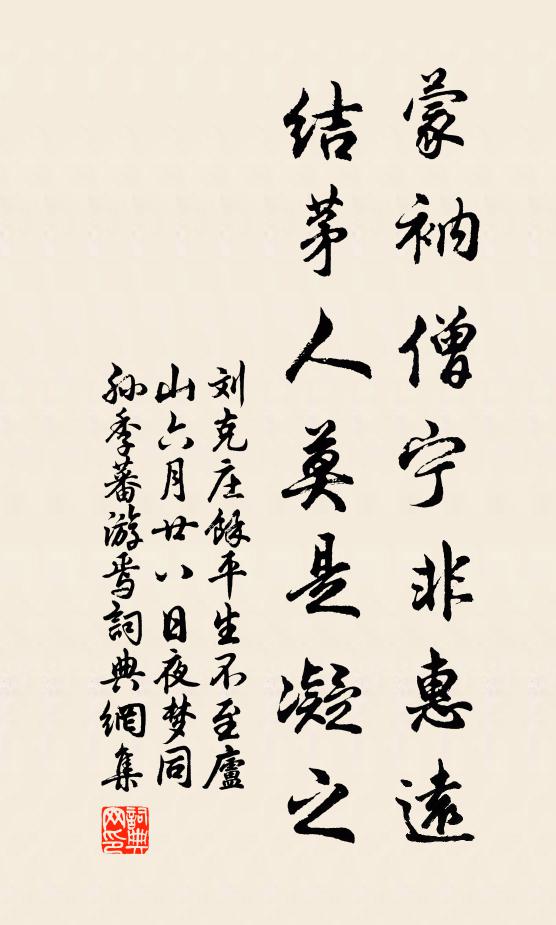 蒙衲僧宁非惠遠
结茅人莫是凝之
刘克庄餘平生不至廬
山六月廿八日夜梦同
孙季蕃游焉詞典網集
詞典網印